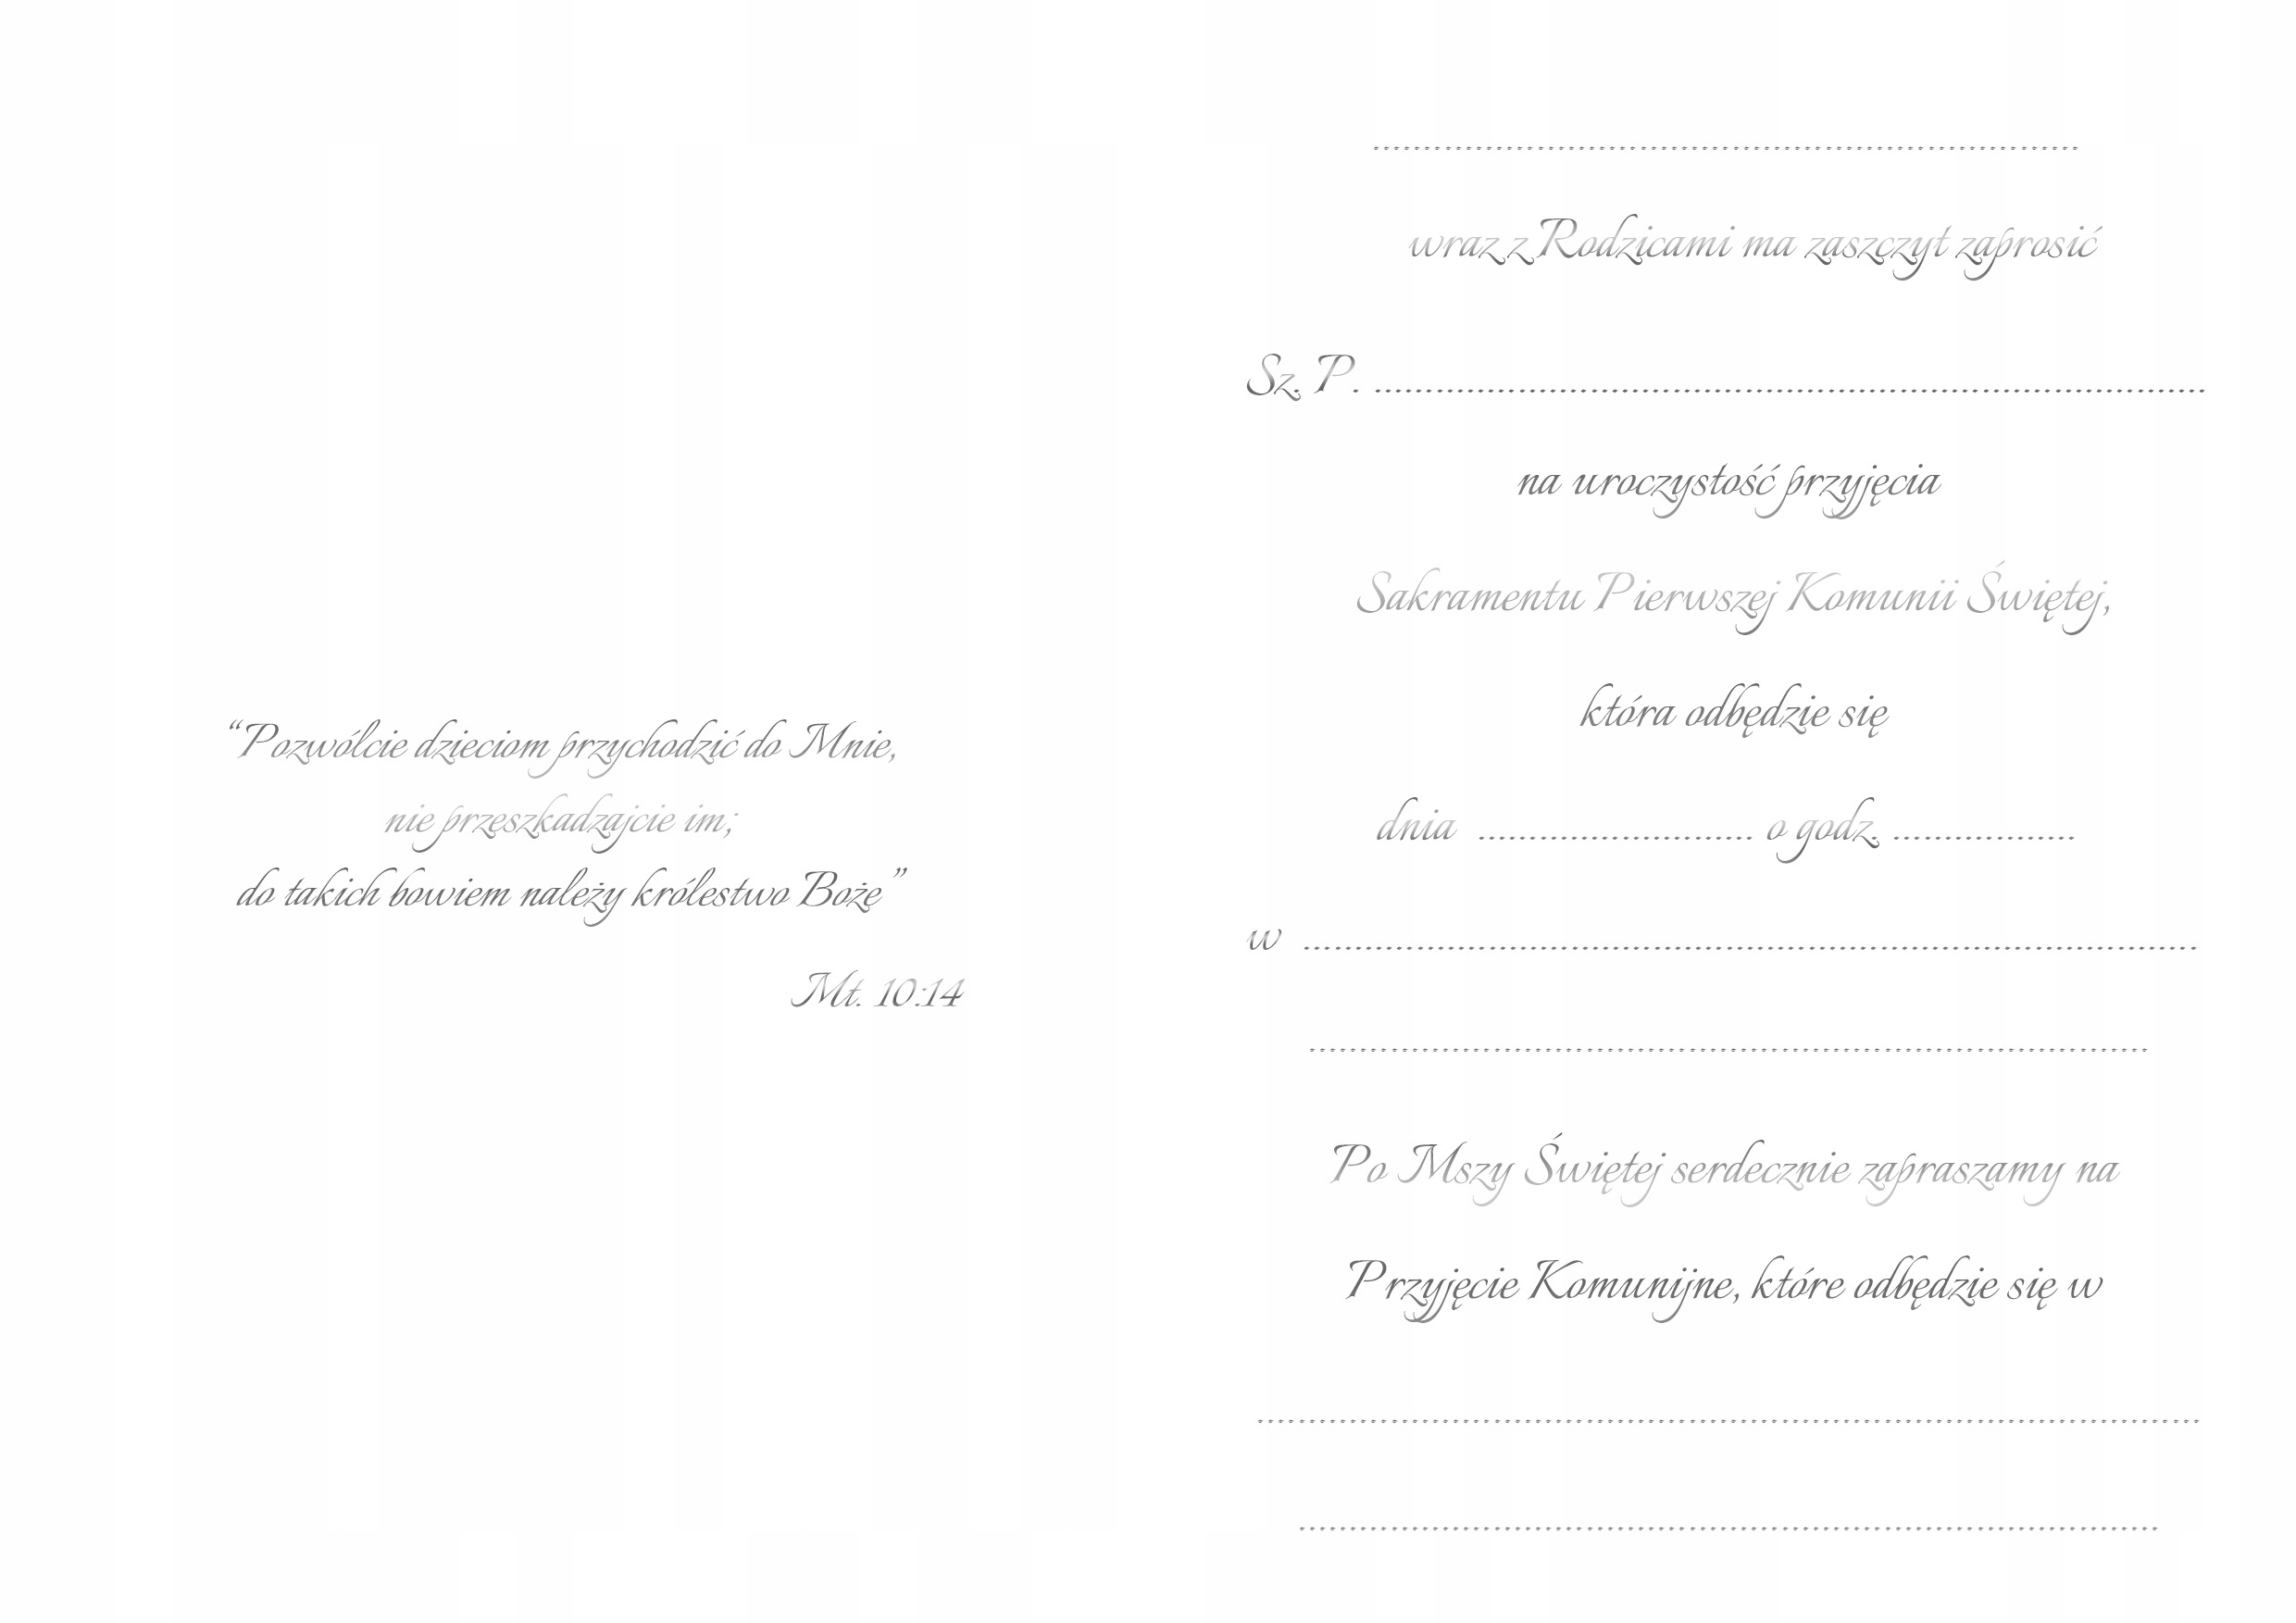 “Pozwólcie dzieciom przychodzić do Mnie,
nie przeszkadzajcie im;
do takich bowiem należy królestwo Boże”
Mt. 10:14
....................................................................
wraz z Rodzicami ma zaszczyt zaprosić
Sz. P. ................................................................................
na uroczystość przyjęcia
Sakramentu Pierwszej Komunii Świętej,
która odbędzie się
dnia ........................... o godz. ..................
w ......................................................................................
.................................................................................
Po Mszy Świętej serdecznie zapraszamy na
Przyjęcie Komunijne, które odbędzie się w
...........................................................................................
...................................................................................